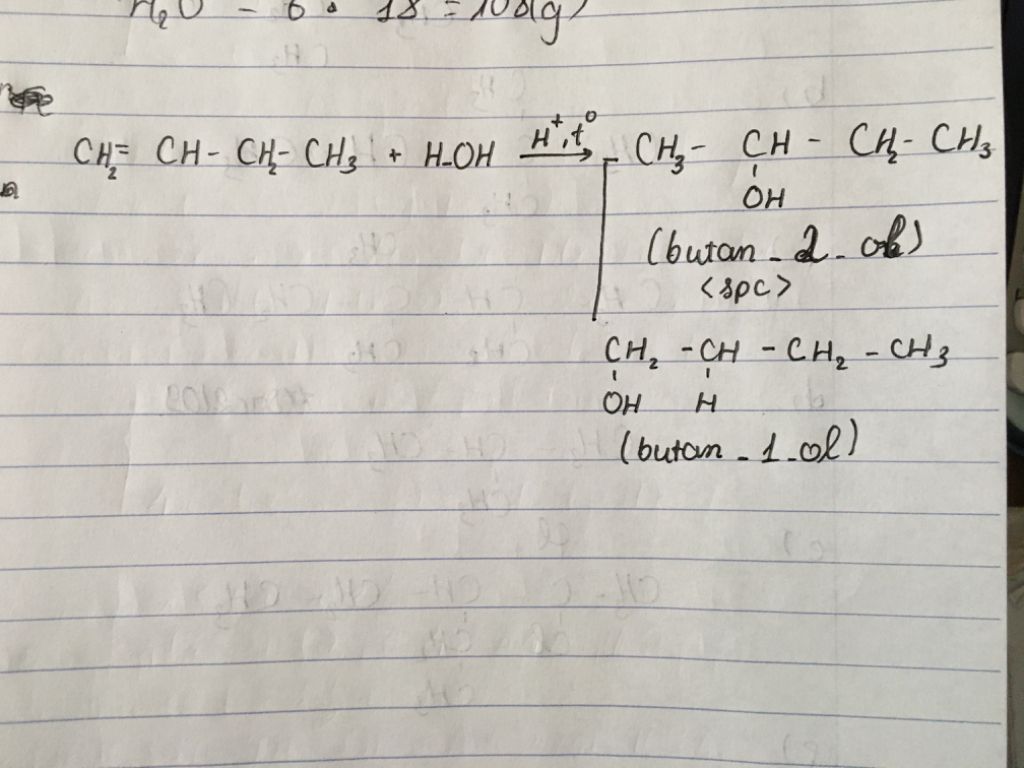 H₂O = 6 . 18 = 108(g)
CH₂= CH - CH₂- CH₃ + H-OH H⁺,t⁰ → CH₃- CH - CH₂- CH₃
OH
(butan - 2 - ol)
<spc>
CH₂ - CH - CH₂ - CH₃
OH H
(butan - 1 - ol)